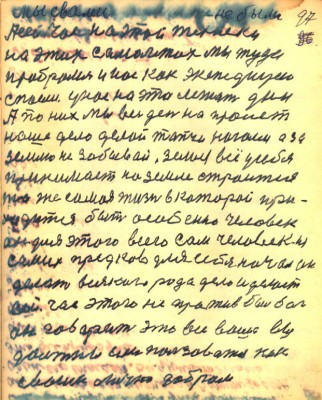 мы с вами не были 97
А сейчас на этой технеки
на этих самолётах мы туда
пробромся и нас как экспедицею
спасли. у нас на это лежат дни
А по них мы вес ден на пролёт
наше дело делой та
землю не забывай, земля всё у себя
принимает на земле строится
та же самая жизнь в которой при-
ходится быт особенно человек
он для этого всего сам человек
самих предков для себя начал он
делат всякого рода дело и делает
сой час этого не против был бог
он говорит это все ваше
должны им ползоватся как
своим лично добром